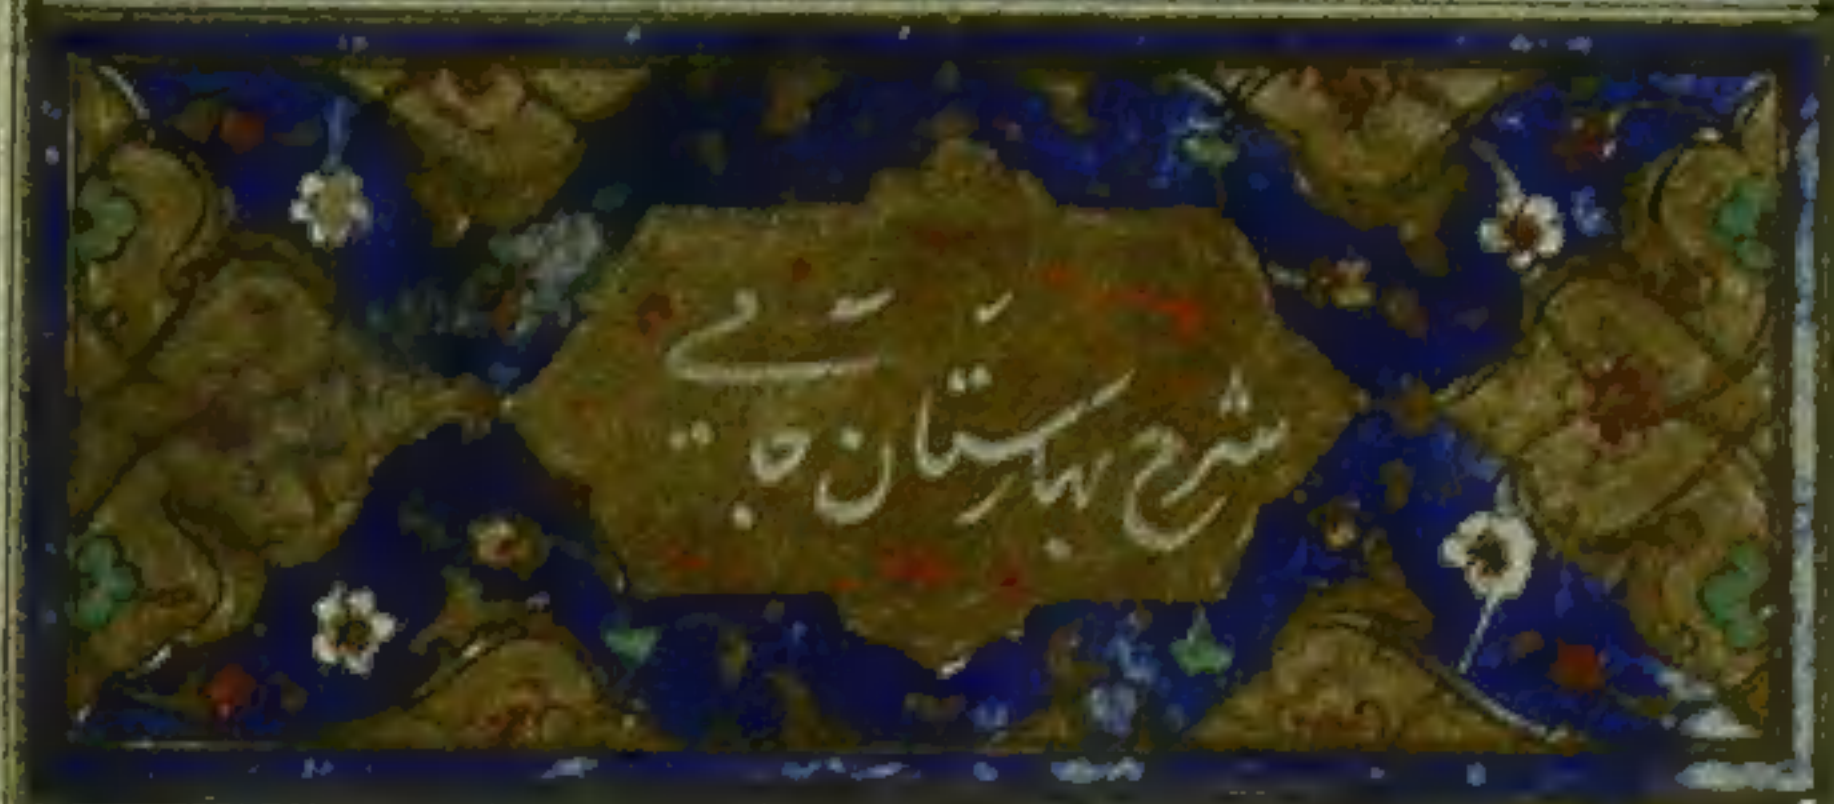 شرح بهارستان جامی